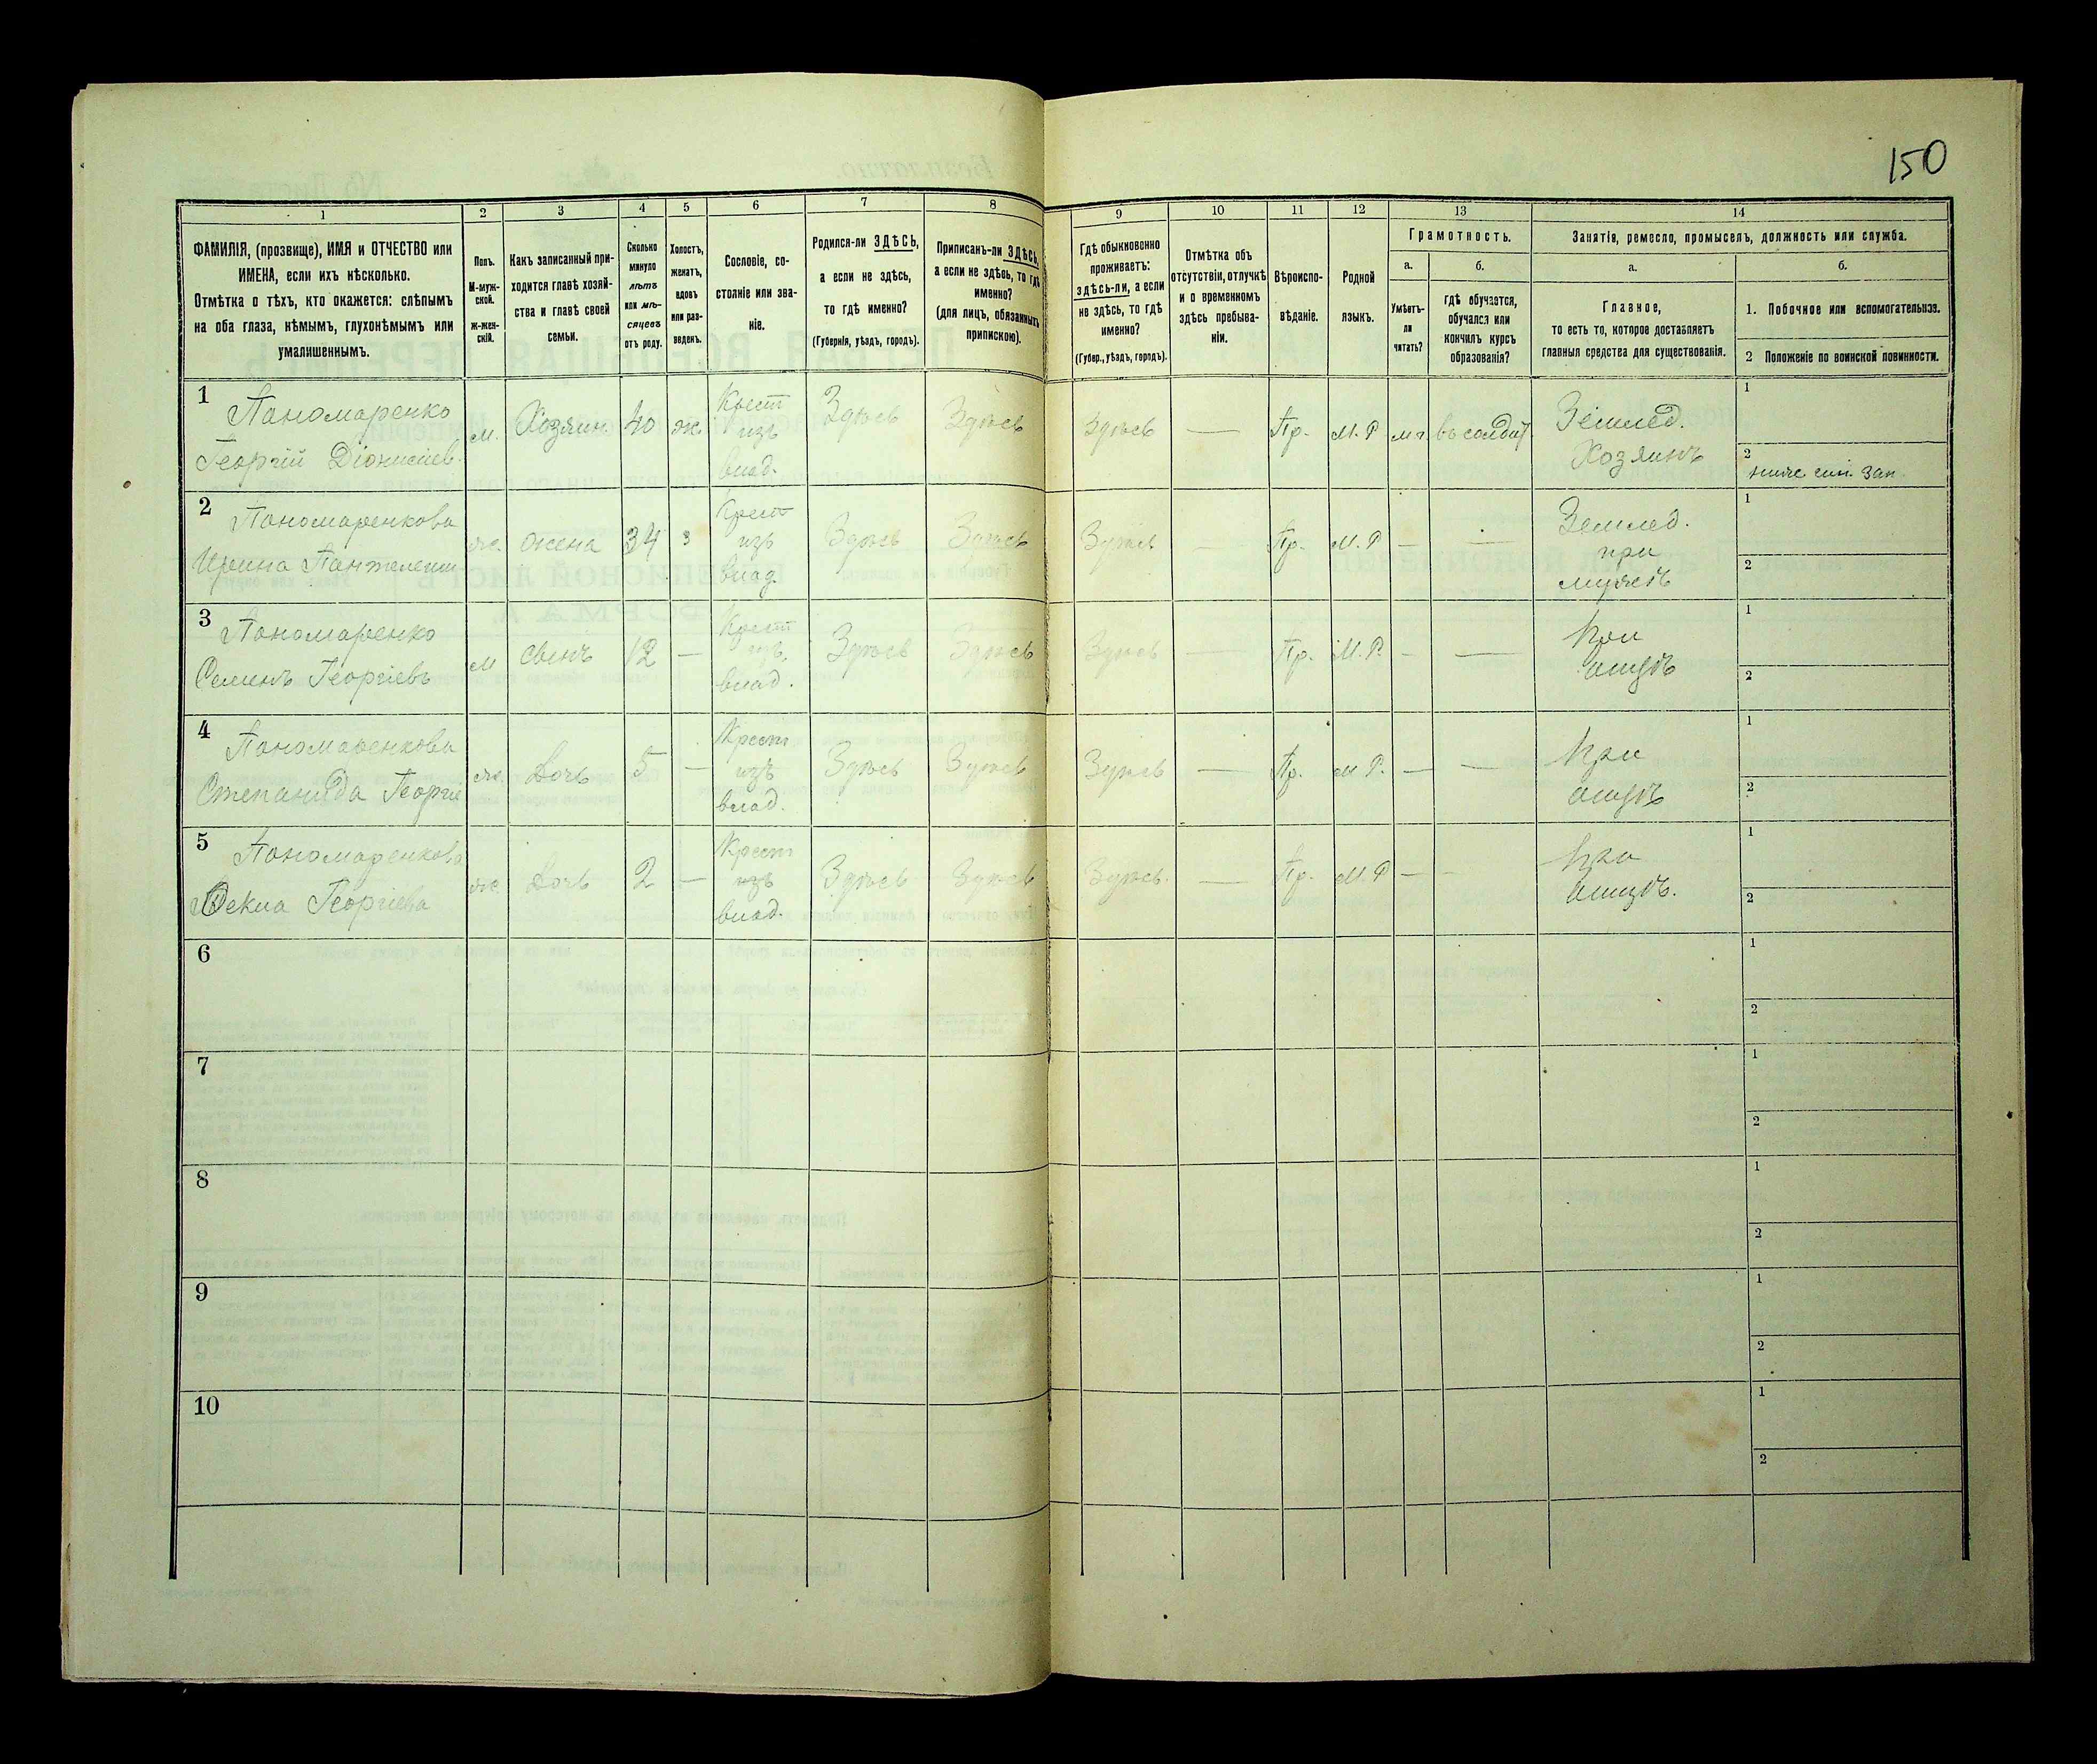 150
1 2 3 4 5 6 7 8 9 10 11 12 13 14
ФАМИЛІЯ, (прозвище), ИМЯ и ОТЧЕСТВО или
ИМЕНА, если ихъ нѣсколько.
Отмѣтка о тѣхъ, кто окажется: слѣпымъ
на оба глаза, нѣмымъ, глухонѣмымъ или
умалишеннымъ.
Полъ.
М-муж-
ской.
ж-жен-
скій.
Какъ записанный при-
ходится главѣ хозяй-
ства и главѣ своей
семьи.
Сколько
минуло
лѣтъ
или мѣ-
сяцевъ
отъ роду.
Холостъ,
женатъ,
вдовъ
или раз-
веденъ.
Сословіе, со-
стояніе или зва-
ніе.
Родился-ли ЗДѢСЬ,
а если не здѣсь,
то гдѣ именно?
(Губернія, уѣздъ, городъ).
Приписанъ-ли ЗДѢСЬ,
а если не здѣсь, то гдѣ
именно?
(для лицъ, обязанныхъ
припискою).
Гдѣ обыкновенно
проживаетъ:
здѣсь-ли, а если
не здѣсь, то гдѣ
именно?
(Губер., уѣздъ, городъ).
Отмѣтка объ
отсутствіи, отлучкѣ
и о временномъ
здѣсь пребыва-
ніи.
Вѣроиспо-
вѣданіе.
Родной
языкъ.
Грамотность.
а.
Умѣетъ-
ли
читать?
б.
гдѣ обучается,
обучался или
кончилъ курсъ
образованія?
Занятія, ремесло, промыселъ, должность или служба.
а.
Главное,
то есть то, которое доставляетъ
главныя средства для существованія.
б.
1. Побочное или вспомогательное.
2 Положеніе по воинской повинности.
1
Пономаренко
Георгій Діонисіев.
м.
Хозяин
40
ж
Крест
изъ
влад.
Здѣсь
Здѣсь
Здѣсь
—
Пр.
М. Р
Землед.
Хозяинъ
1
2
зап.
2
Пономаренкова
Ирина Пантелеим
же.
жена
34
з
Крест
изъ
влад.
Здѣсь
Здѣсь
Здѣсь
—
Пр.
М. Р
—
—
Землед.
при
мужѣ
1
2
3
Пономаренко
Семенъ Георгіевъ
м
сынъ
12
—
Крест
изъ
влад.
Здѣсь
Здѣсь
Здѣсь
—
Пр.
М. Р.
—
—
при
отцѣ
1
2
4
Пономаренкова
Степанида Георгіе
же.
Дочь
5
—
Крест
изъ
влад.
Здѣсь
Здѣсь
Здѣсь
—
Пр.
М Р.
—
—
при
отцѣ
1
2
5
Пономаренкова
Георгіева
же
Дочь
2
—
Крест
изъ
влад.
Здѣсь
Здѣсь
Здѣсь.
—
Пр.
М. Р
—
—
при
отцѣ.
1
2
6
1
2
7
1
2
8
1
2
9
1
2
10
1
2